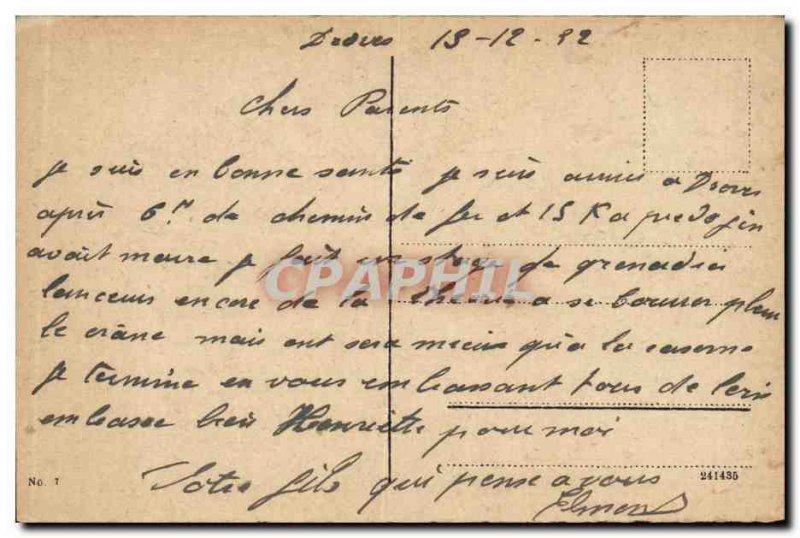 Drovs 19-12-32
Chers Parents
je suis en bonne santé je suis arrivé a Drovs
après 6 H de chemin de fer et 15 K a pied on
avait marre je fait un stage de grenadier
lanceur encore de la théorie a se bourrer plein
le crâne mais ont sera mieux qu'a la caserne
je termine en vous embassant tous de loin
embasse bien Henriette pour moi
Votre fils qui pense a vous
No. 7 241435
CPAPHIL